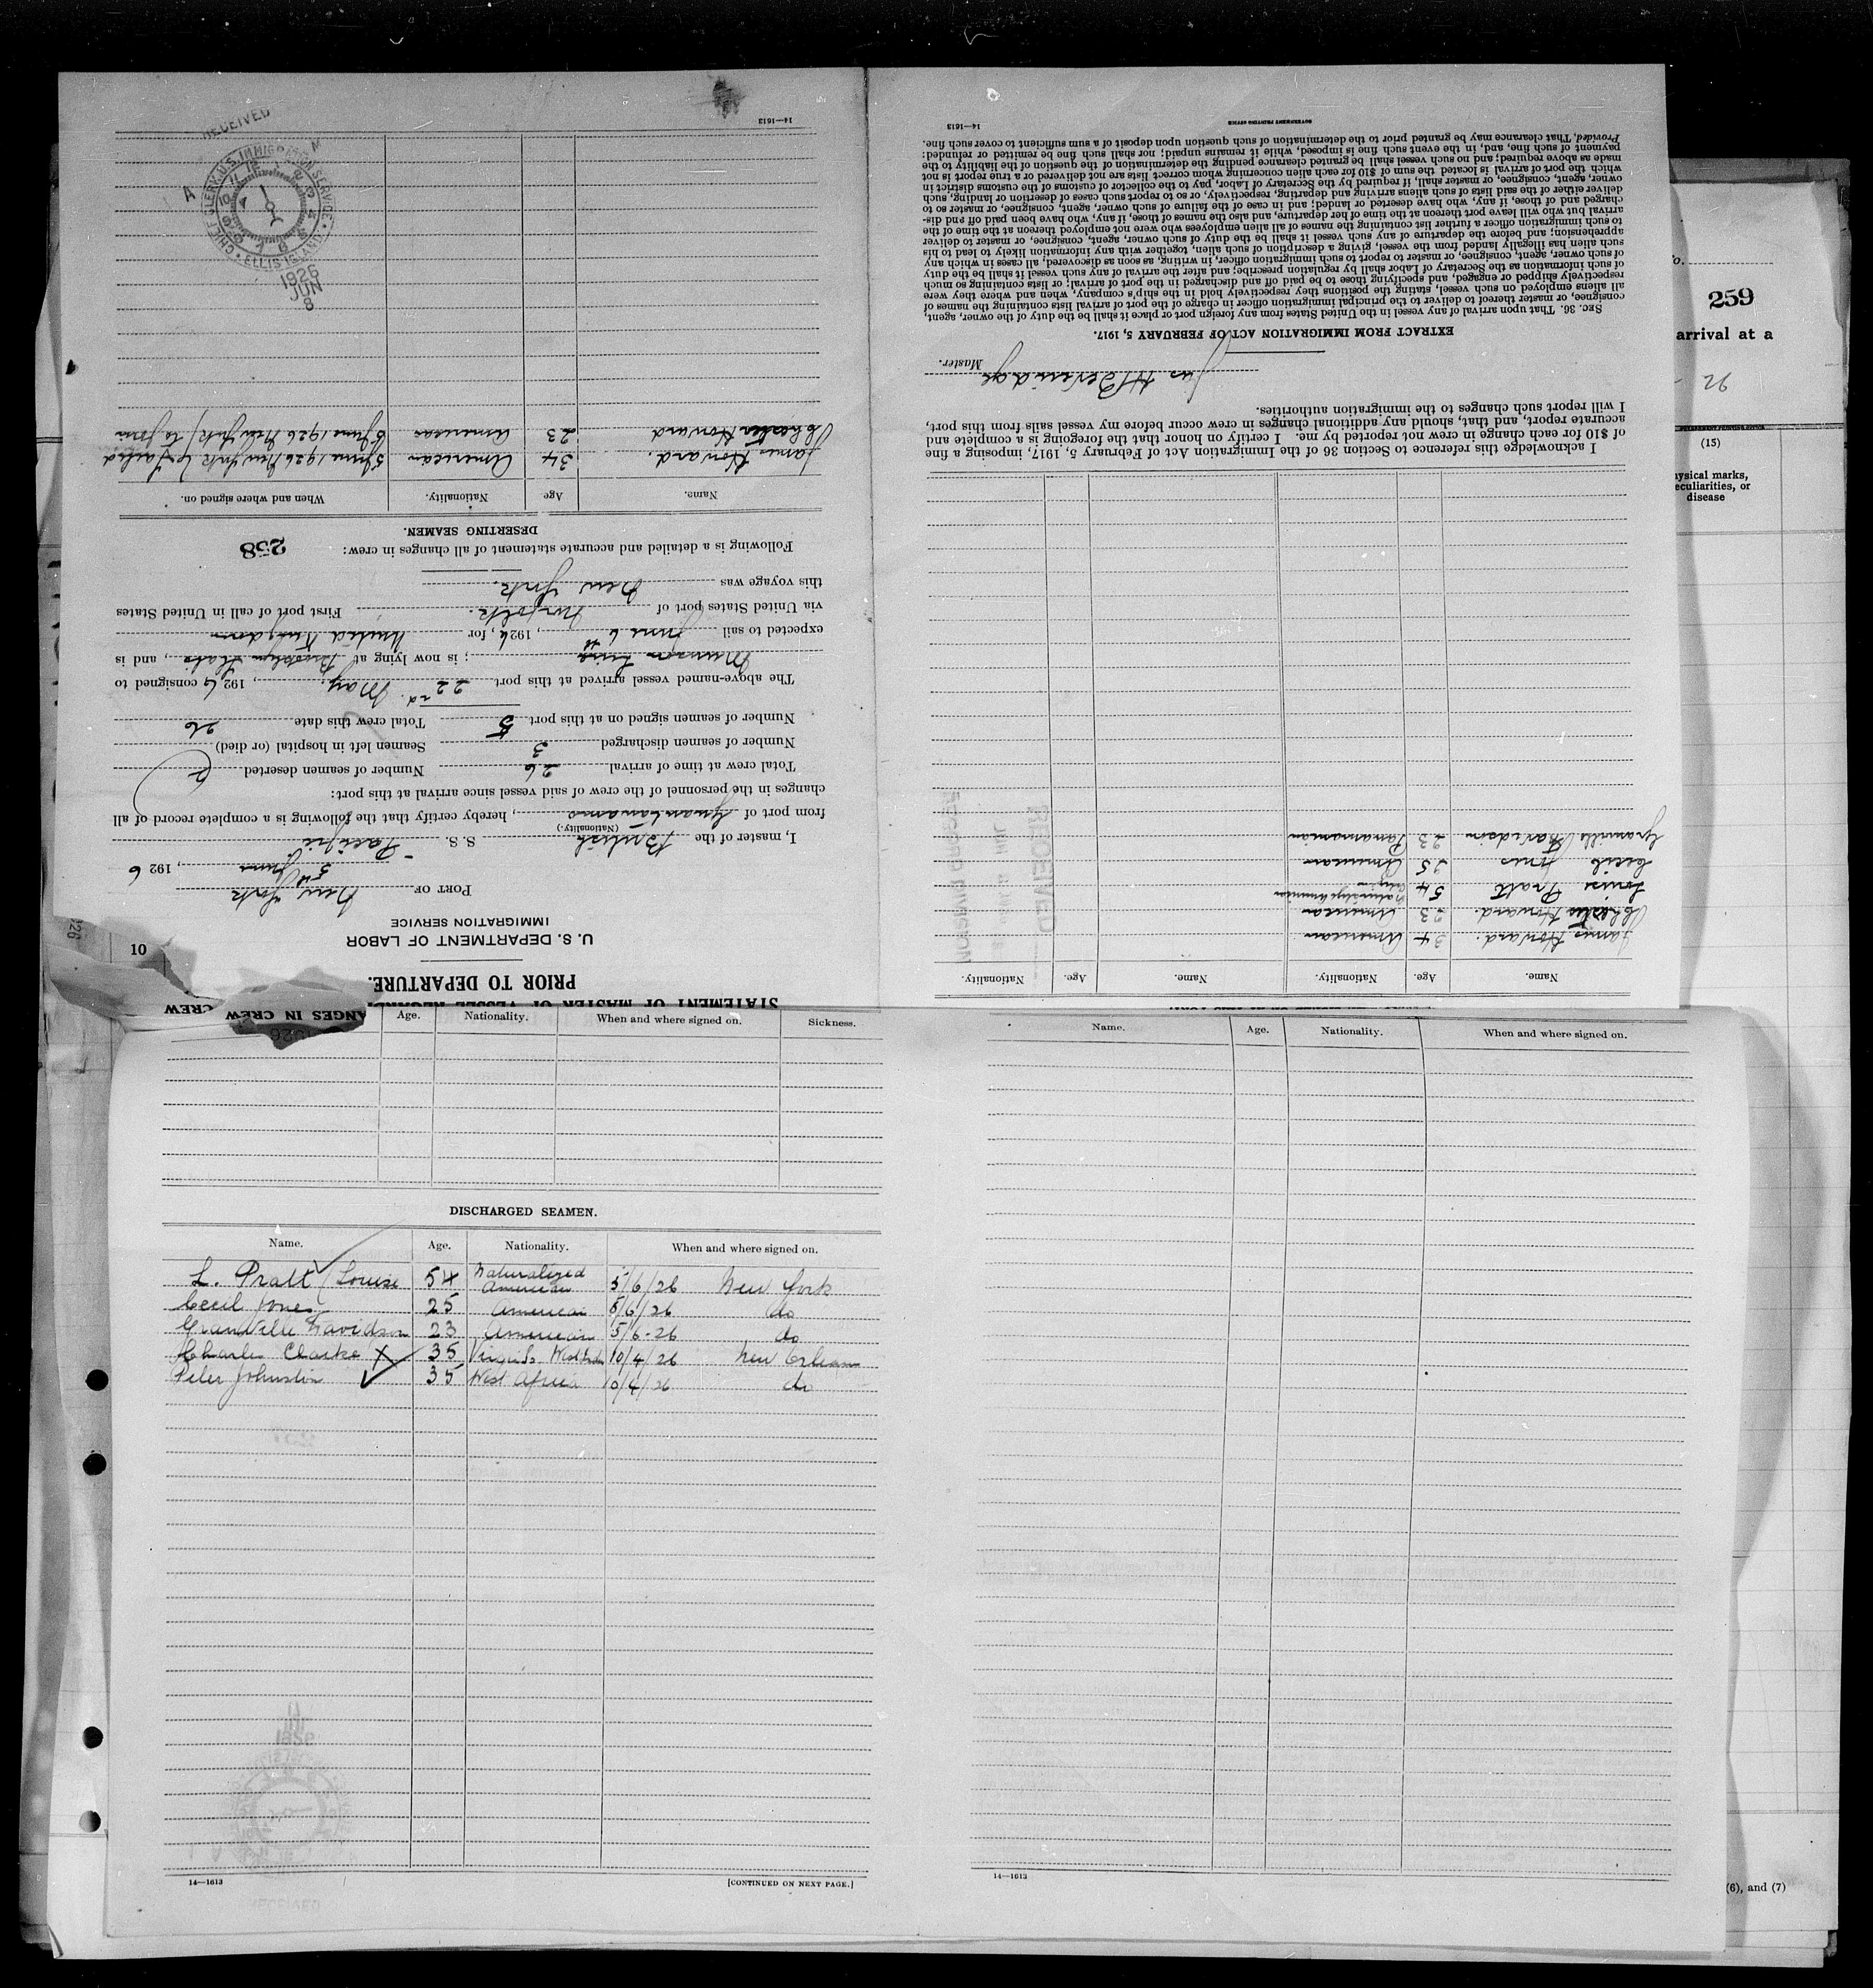 STATEMENT OF MASTER OF VESSEL REGARDING CHANGES IN CREW
PRIOR TO DEPARTURE.
U. S. DEPARTMENT OF LABOR
IMMIGRATION SERVICE
10
PORT OF New York
5th June, 1926
I, master of the British S. S. Pacific
(Nationality.)
from port of Guantanamo, hereby certify that the following is a complete record of all
changes in the personnel of the crew of said vessel since arrival at this port:
Total crew at time of arrival 26 Number of seamen deserted 2
Number of seamen discharged 3 Seamen left in hospital (or died)
Number of seamen signed on at this port 5 Total crew this date 26
The above-named vessel arrived at this port 22nd May, 1926 consigned to
Munson Line; is now lying at Brooklyn, and is
expected to sail June 6th, 1926, for United Kingdom
via United States port of Norfolk. First port of call in United States
this voyage was New York.
Following is a detailed and accurate statement of all changes in crew: 258
DESERTING SEAMEN.
Name. Age Nationality. When and where signed on.
James Howard. 34 American 5 June 1926 New York Failed
Chester Howard 23 American 5 June 1926 New York to join
14—1613
RECEIVED
CHIEF CLERK U.S. IMMIGRATION SERVICE
ELLIS ISLAND
A M
1926
JUN
8
Name. Age. Nationality. Name. Age. Nationality.
James Howard. 34 American
Chester Howard. 23 American
Louise Pratt 54 American
Cecil Jones 25 American
Granville Davidson 23 Panamanian
I acknowledge this reference to Section 36 of the Immigration Act of February 5, 1917, imposing a fine
of $10 for each change in crew not reported by me. I certify on honor that the foregoing is a complete and
accurate report, and that, should any additional changes in crew occur before my vessel sails from this port,
I will report such changes to the immigration authorities.
Jas H Beveridge Master.
EXTRACT FROM IMMIGRATION ACT OF FEBRUARY 5, 1917.
SEC. 36. That upon arrival of any vessel in the United States from any foreign port or place it shall be the duty of the owner, agent,
consignee, or master thereof to deliver to the principal immigration officer in charge of the port of arrival lists containing the names of
all aliens employed on such vessel, stating the positions they respectively hold in the ship's company, when and where they were
respectively shipped or engaged, and specifying those to be paid off and discharged in the port of arrival; or lists containing so much
of such information as the Secretary of Labor shall by regulation prescribe; and after the arrival of any such vessel it shall be the duty
of such owner, agent, consignee, or master to report to such immigration officer, in writing, as soon as discovered, all cases in which any
such alien has illegally landed from the vessel, giving a description of such alien, together with any information likely to lead to his
apprehension; and before the departure of any such vessel it shall be the duty of such owner, agent, consignee, or master to deliver
to such immigration officer a further list containing the names of all alien employees who were not employed thereon at the time of the
arrival but who will leave port thereon at the time of her departure, and also the names of those, if any, who have been paid off and dis-
charged and of those, if any, who have deserted or landed; and in case of the failure of such owner, agent, consignee, or master so to
deliver either of the said lists of such aliens arriving and departing, respectively, or so to report such cases of desertion or landing, such
owner, agent, consignee, or master, shall, if required by the Secretary of Labor, pay to the collector of customs of the customs district in
which the port of arrival is located the sum of $10 for each alien concerning whom correct lists are not delivered or a true report is not
made as above required; and no such vessel shall be granted clearance pending the determination of the question of the liability to the
payment of such fine, and, in the event such fine is imposed, while it remains unpaid; nor shall such fine be remitted or refunded:
Provided, That clearance may be granted prior to the determination of such question upon deposit of a sum sufficient to cover such fine.
14—1613 GOVERNMENT PRINTING OFFICE
259
arrival at a
(15)
disease
Age. Nationality. When and where signed on. Sickness.
DISCHARGED SEAMEN.
Name. Age. Nationality. When and where signed on.
L. Pratt (Louise 54 Naturalized American 5/6/26 New York
Cecil Jones 25 American 5/6/26 do
Granville Davidson 23 American 5/6-26 do
Charles Clarke X 35 10/4/26 New Orleans
Peter Johnston 35 West Africa 10/4/26 do
14—1613 [CONTINUED ON NEXT PAGE.]
Name. Age. Nationality. When and where signed on.
14—1613
(6), and (7)